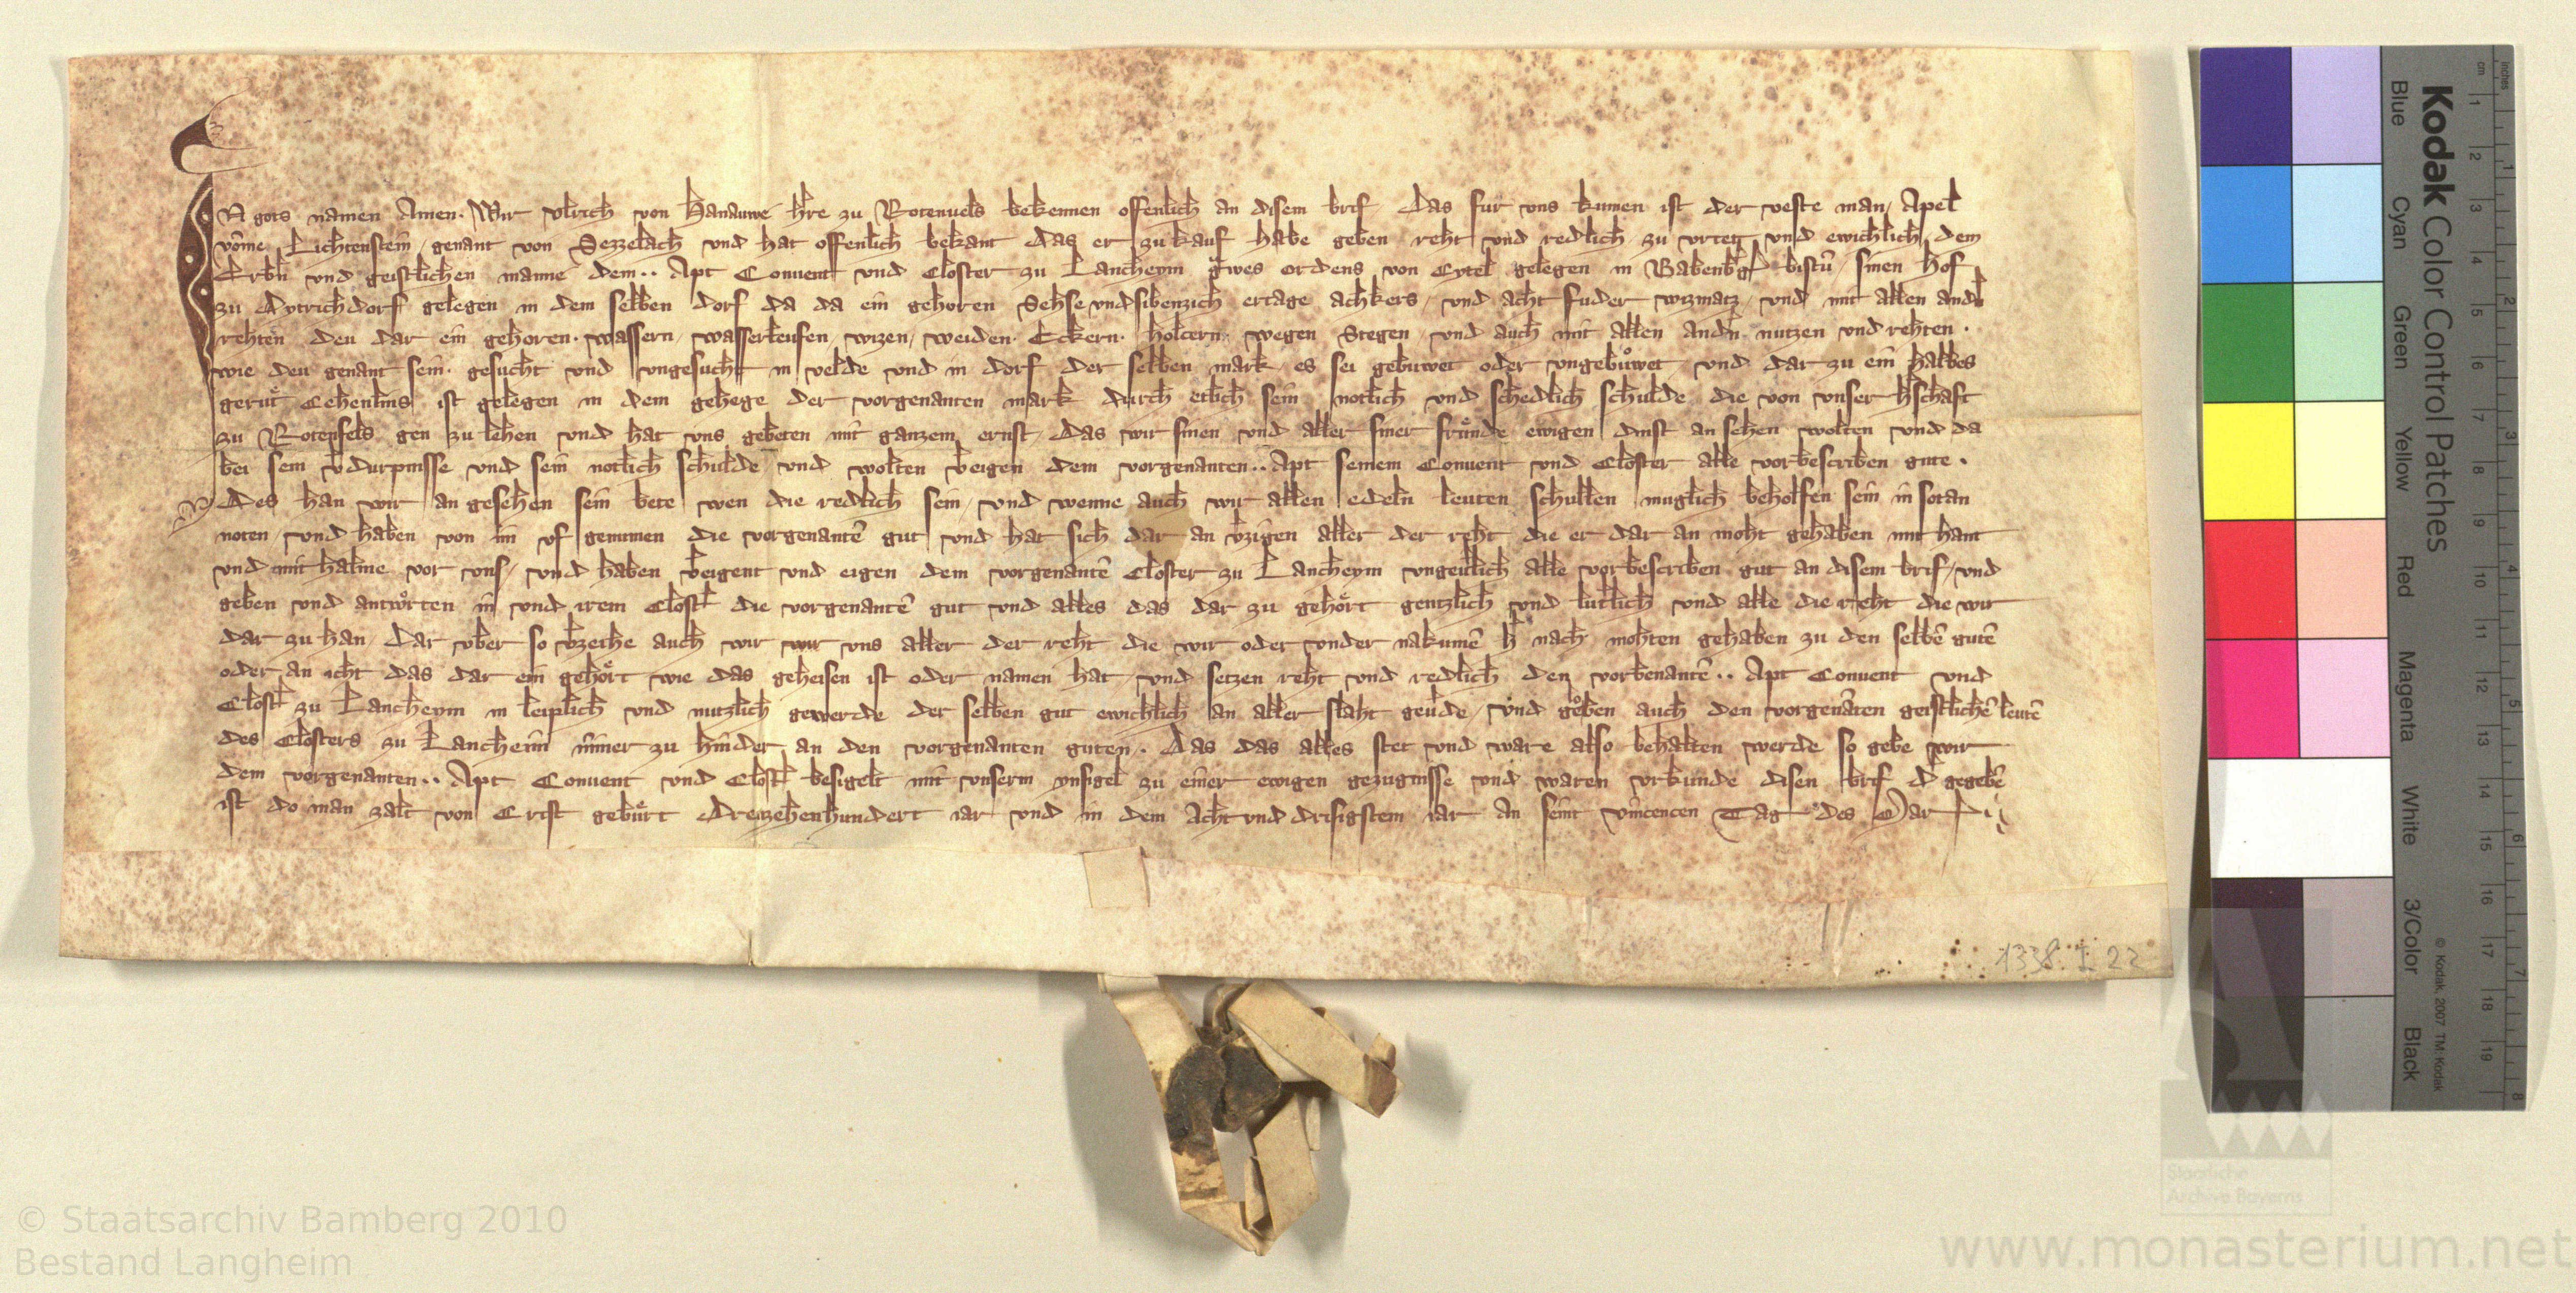 IN gots namen Amen. Wir Vlrich von Hanauwe h're zu Rotenuels bekennen offenlich an disem brif Das fur vns kumen ist der veste man Apel
vome Lichtenstein genant von Sezzelach vnd hat offenlich bekant das er zu kauf habe geben reht vnd redlich zu vrtett vnd ewichlich dem
Erbn vnd geistlichen manne dem .. Apt Conuent vnd Closter zu Lancheym ordens von Cytel gelegen in Babenb'g' bistu sinen hof
zu Dytrichdorf gelegen in dem selben dorf da da ein gehoren Sehse vnd sibenzich ertage achkers vnd acht fuder wizmatz vnd mit allen and'n
rehten den dar ein gehoren. wassern wasserleufen, wizen, weiden. Eckern. holcern. wegen Stegen vnd auch mit allen andn nutzen vnd rehten.
wie den genant sein. gesucht vnd vngesucht in velde vnd in dorf der selben mark es sei gebuwet oder vngebuwet vnd dar zu ein halbes
gerut ist gelegen in dem gehege der vorgenanten mark durch etlich sein notlich vnd schedlich schulde die von vnser h'schaft
zu Rotenfels gen zu lehen vnd hat vns gebeten mit ganzem ernst Das wir sinen vnd aller siner frunde ewigen dinst an sehen wolten vnd da
bei sein v'durpnisse vnd sein notlich schulde vnd wolten v'eigen dem vorgenanten .. Apt seinem Conuent vnd Closter alle vorbescriben gute.
Des han wir an gesehen sein bete wen die redlich sein, vnd wenne auch wir allen edeln leuten schullen muglich beholfen sein in sotan
noten vnd haben von im vf genumen die vorgenante gut vnd hat sich dar an v'zigen aller der reht die er dar an moht gehaben mit hant
vnd mit halme vor vns, vnd haben v'eigent vnd eigen dem vorgenante Closter zu Lancheym alle vorbescriben gut an disem brif, vnd
geben vnd antworten in vnd irem Clost' die vorgenante gut vnd alles das dar zu gehort gentzlich vnd lutlich vnd alle die reht die wir
dar zu han. Dar vber so v'zeihe auch wir wir vns aller der reht die wir oder vnder nakume h' nach mohten gehaben zu den selbe gute
oder an icht das dar ein gehort wie das geheisen ist oder namen hat vnd setzen reht vnd redlich den vorbenante .. Apt Conuent vnd
Clost' zu Lancheym in leiplich vnd nutzlich gewerde der selben gut ewichlich an aller slaht geude, vnd geben auch den vorgenanten geistliche leute
des Closters zu Lancheim nimer zu hinder an den vorgenanten guten. Das das alles stet vnd ware also behalten werde so gebe wir
dem vorgenanten .. Apt Conuent vnd Clost' besigelt mit vnserm ynsigel zu einer ewigen gezugnisse vnd waren vrkunde disen brif d' gegebe
ist do man zalt von Crist geburt Dreizehenhundert iar vnd in dem Acht vnd drisigstem iar An seint Vincencen Tag des
1338. I. 22
Kodak Color Control Patches
Blue Cyan Green Yellow Red Magenta White 3/Color Black
© Kodak, 2007 TM: Kodak
cm 1 2 3 4 5 6 7 8 9 10 11 12 13 14 15 16 17 18 19
Inches 1 2 3 4 5 6 7 8
© Staatsarchiv Bamberg 2010
Bestand Langheim
Staatliche
Archive Bayerns
www.monasterium.net